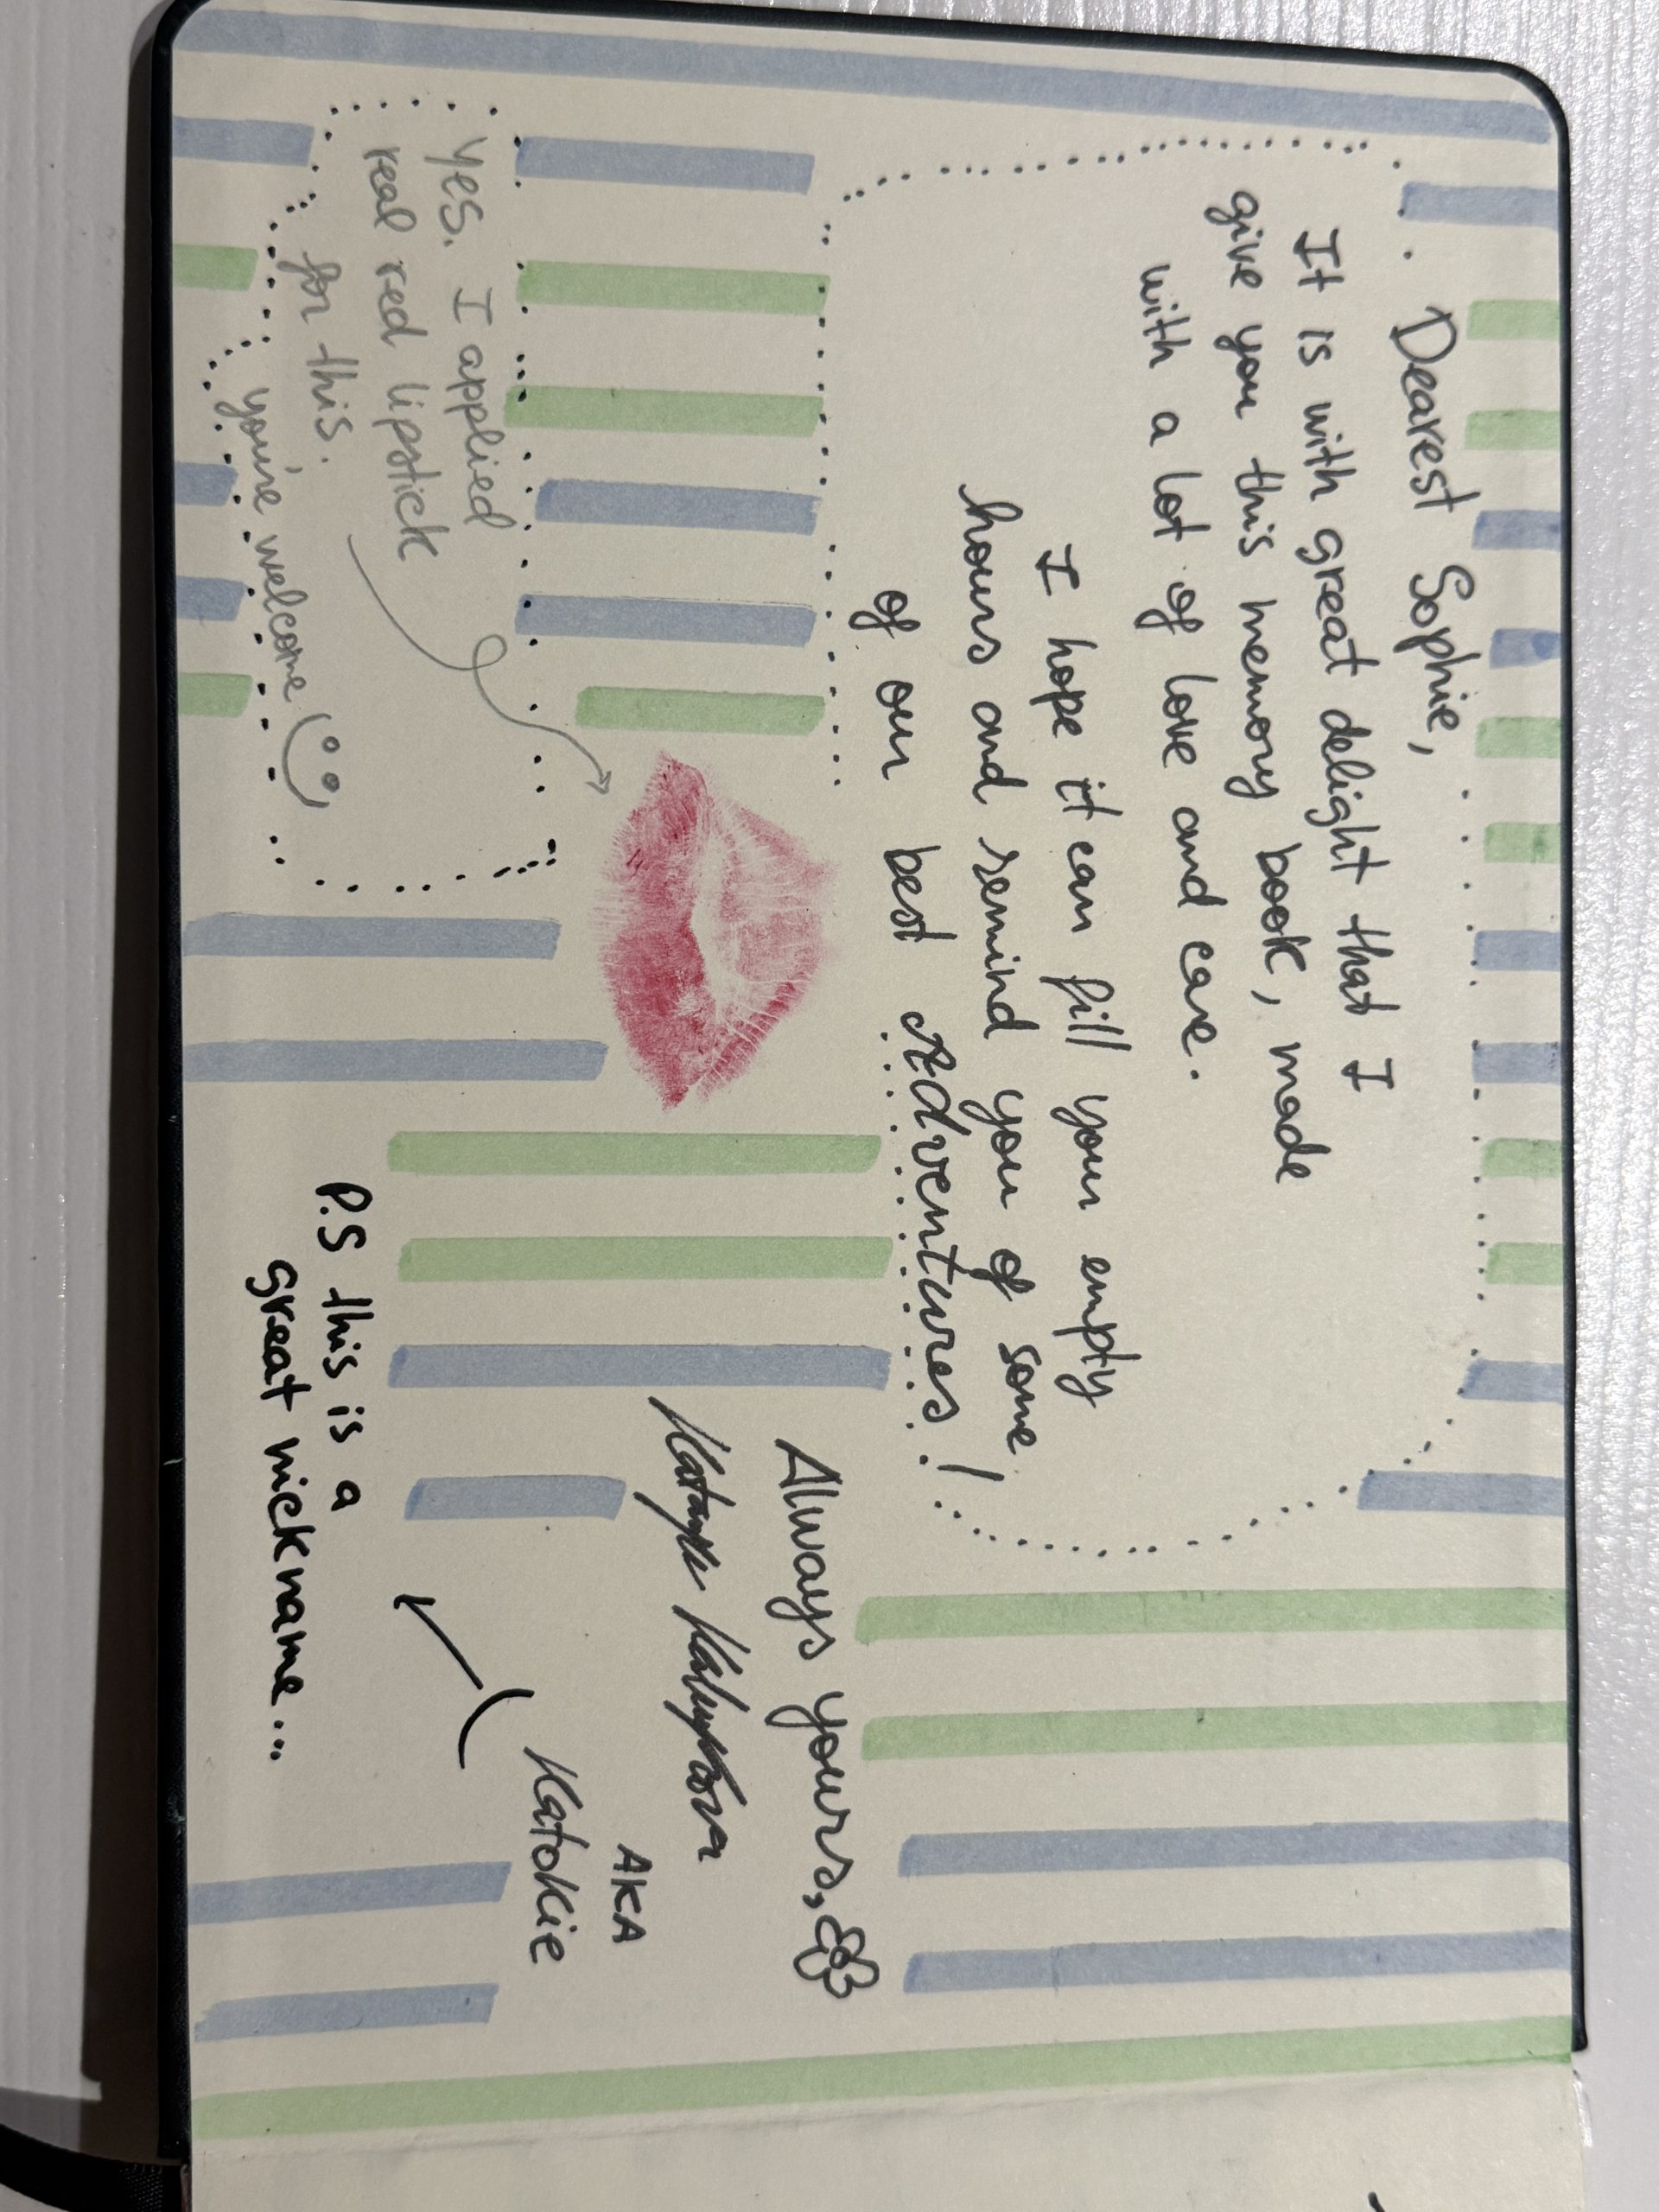 Dearest Sophie,
It is with great delight that I
give you this memory book, made
with a lot of love and care.
I hope it can fill your empty
hours and remind you of some
of our best Adventures!
Always yours,
AKA
Katokie
P.S this is a
great nickname...
Yes. I applied
real red lipstick
for this.
you're welcome